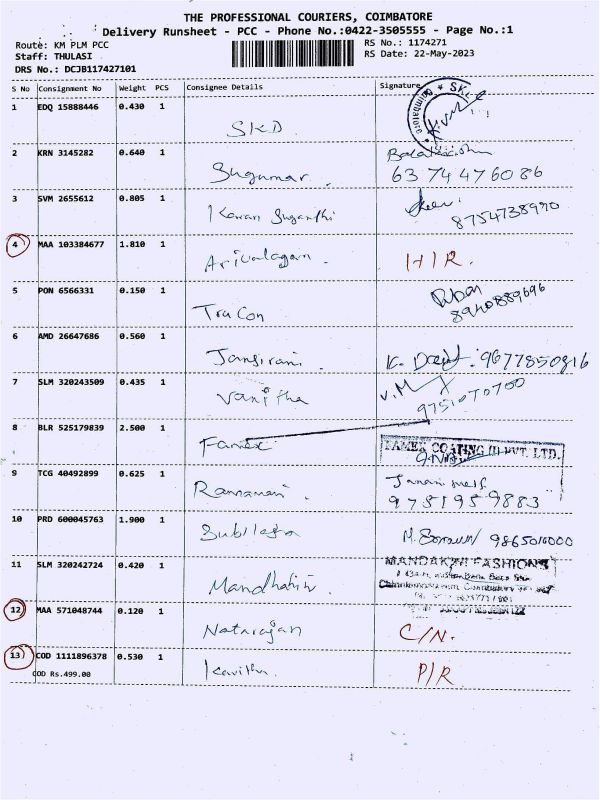 THE PROFESSIONAL COURIERS, COIMBATORE
Delivery Runsheet - PCC - Phone No.:0422-3505555 - Page No.:1
Route: KM PLM PCC RS No.: 1174271
Staff: THULASI RS Date: 22-May-2023
DRS No.: DCJB117427101
S No Consignment No Weight PCS Consignee Details Signature
1 EDQ 15888446 0.430 1 SKD
2 KRN 3145282 0.640 1 Sugumar 6374476086
3 SVM 2655612 0.805 1 8754738990
4 MAA 103384677 1.810 1 Arivalagan H/R.
5 PON 6566331 0.150 1 Tru Con 8940889696
6 AMD 26647686 0.560 1 Jansirani 9677850816
7 SLM 320243509 0.435 1 Vanitha V.M 9751070700
8 BLR 525179839 2.500 1 Famex FAMEX COATING (I) PVT. LTD.
9 TCG 40492899 0.625 1 Ramamani 9751959883
10 PRD 600045763 1.900 1 9865010000
11 SLM 320242724 0.420 1 MANDAKINI FASHIONS
12 MAA 571048744 0.120 1 Natarajan C/N.
13 COD 1111896378 0.530 1 Kavitha P/R
COD Rs.499.00